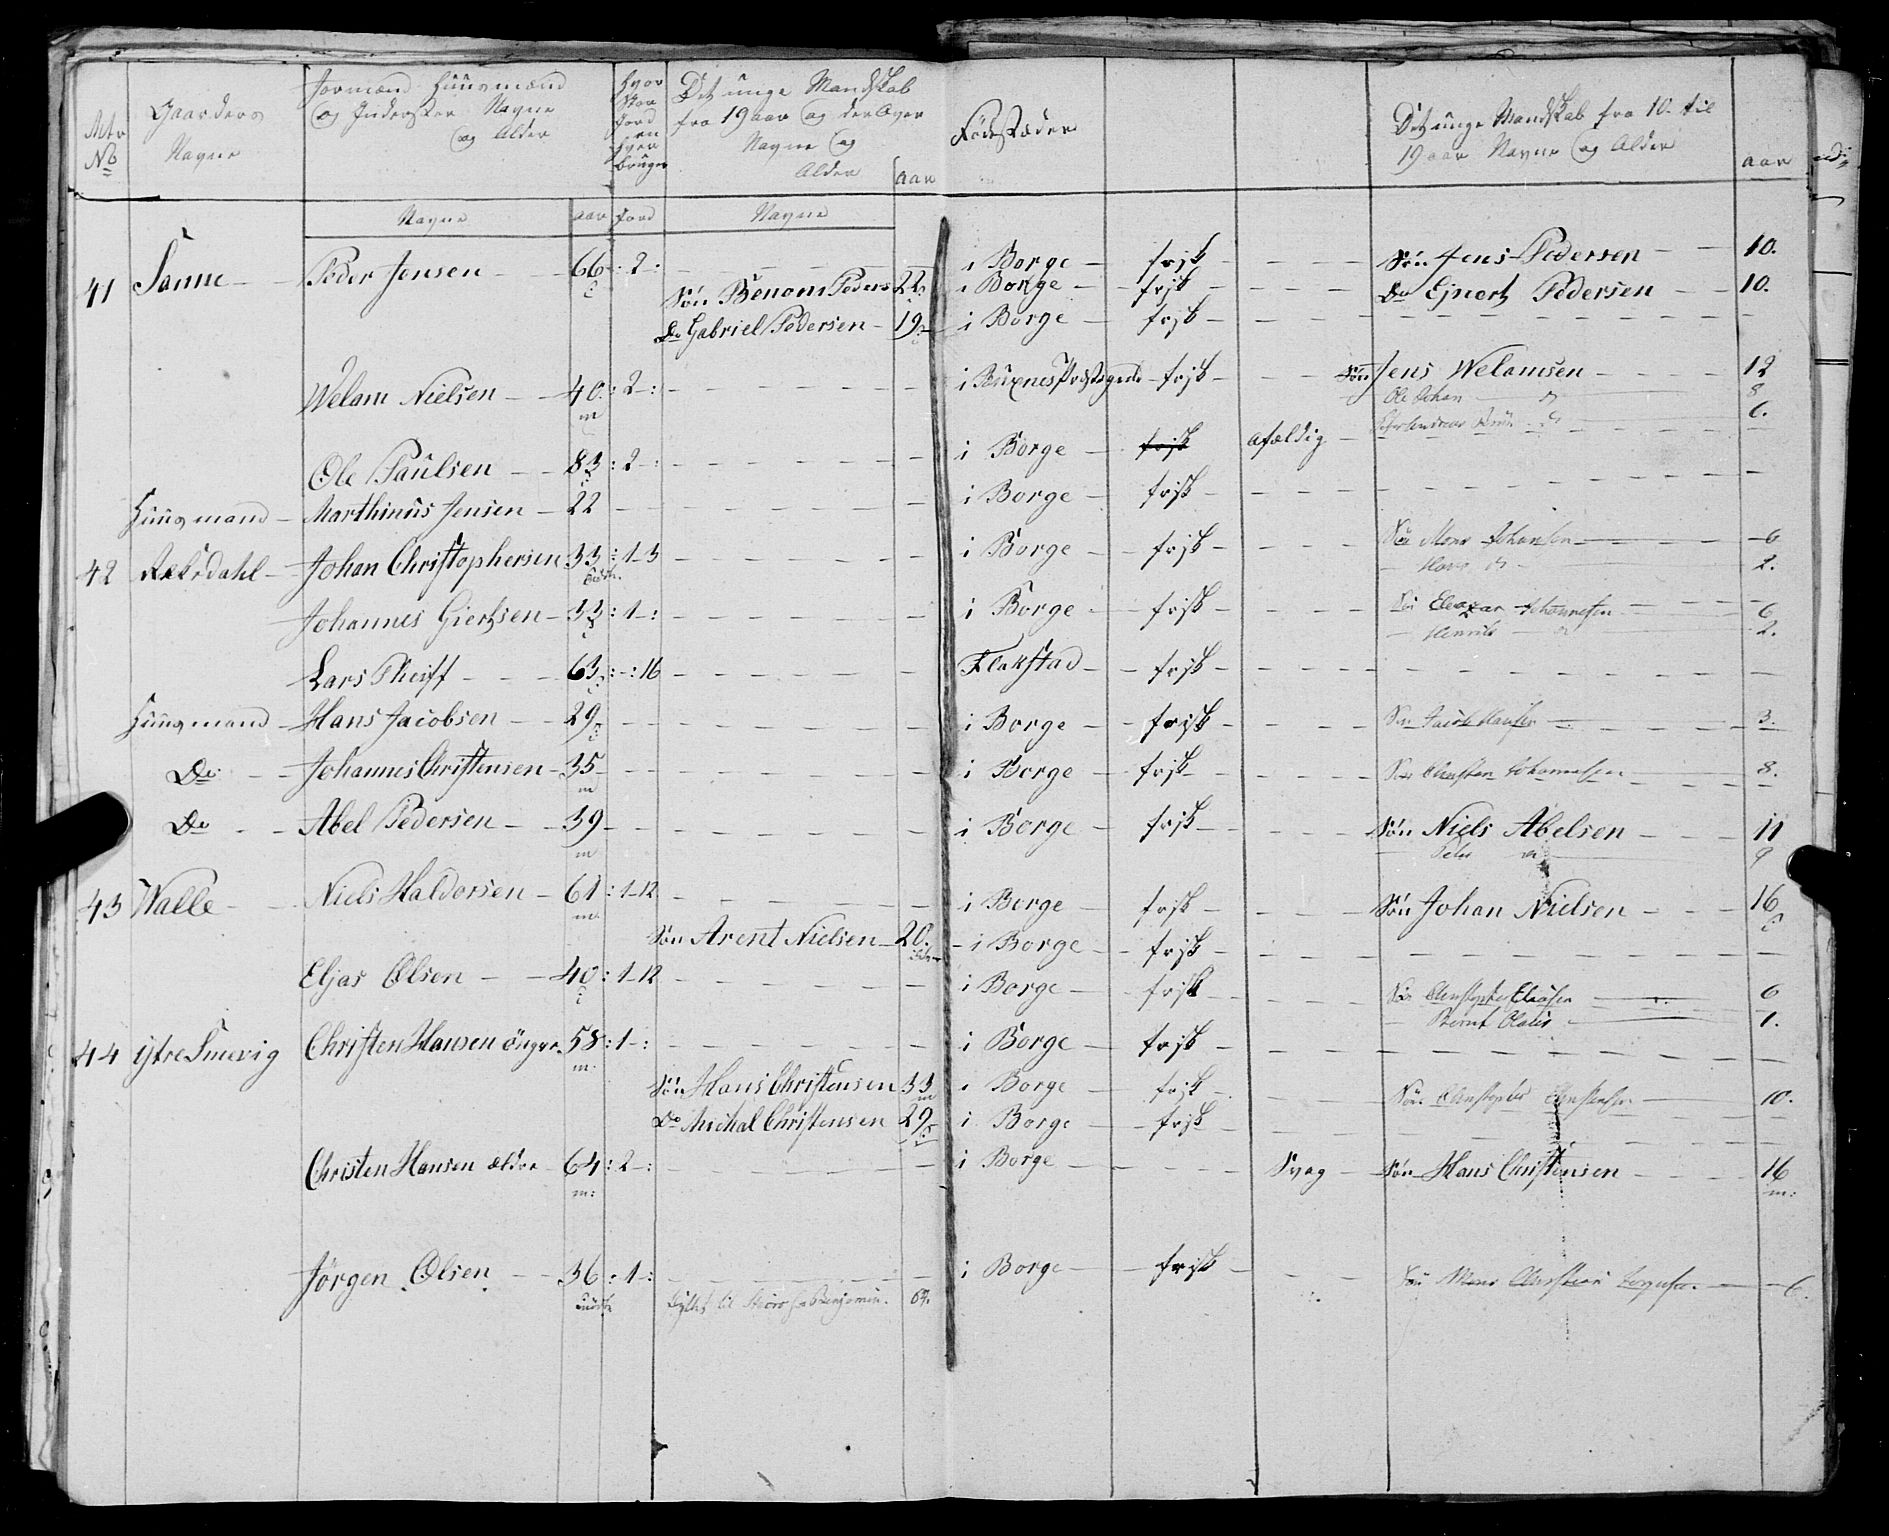 Mtr No | Gaardens Navne | Formænd Huusmænd og Inderster Navne og Alder | Hvor Stor Jord en hver bruger | Det unge Mandskab fra 19 aar og der over Navne og Alder | aar | Fødestæder | Det unge Mandskab fra 10 til 19 aar Navne og Alder | aar
Navne | aar | Jord | Navne
41 Sanne — Peder Jensen — 66 : 2 — i Borge — frisk — Søn Jens Pedersen — 10.
Søn Benoni Peders 22. i Borge — frisk — Do Ejnert Pedersen — 10.
Do Gabriel Pedersen — 19 — i Borge — frisk
Welam Nielsen — 40 : 2 — i Buxnes Præstegield — frisk — Søn Jens Welamsen — 12
m Ole Johan — 8
6.
Ole Paulsen — 83 : 2 — i Borge — frisk afældig
Huusmand — Marthinus Jensen — 22 — i Borge — frisk
42 — Johan Christophersen 33 : 1-3 — i Borge — frisk — Søn Mons Johansen — 6
2.
Johannes Giertsen — 33 : 1 — i Borge — frisk — Eleazar Johannesen — 6
Henrik — 2.
Lars Pheiff — 63 : — : 16 — Flakstad — frisk
Huusmand — Hans Jacobsen — 29 — i Borge — frisk — Søn Jacob Hansen — 3.
Do — Johannes Christensen — 35 — i Borge — frisk — Søn Christen Johannessen — 8.
m
Do — Abel Pedersen — 39 — i Borge — frisk — Søn Niels Abelsen — 11
m Peder — 9
43 Walle — Niels Haldorsen — 61 : 1-12 — i Borge — frisk — Søn Johan Nielsen — 16
m
Søn Arent Nielsen — 20. — i Borge — frisk
Eljas Olsen — 40 : 1-12 — i Borge — frisk — Søn Christopher Eliasen — 6
Bernt Olaus — 1.
44 ytre Smevig — Christen Hansen öngre 58 : 1 — i Borge — frisk
m.
Søn Hans Christensen 33 i Borge — frisk — Søn Christopher Christensen — 10.
m
Do Michal Christensen 29 — i Borge — frisk
Christen Hansen ældre — 64 : 2 — i Borge — Svag — Søn Hans Christensen — 16
m: m:
Jørgen Olsen — 36 : 1 — i Borge — frisk — Søn Mons Christian Jørgensen — 6.